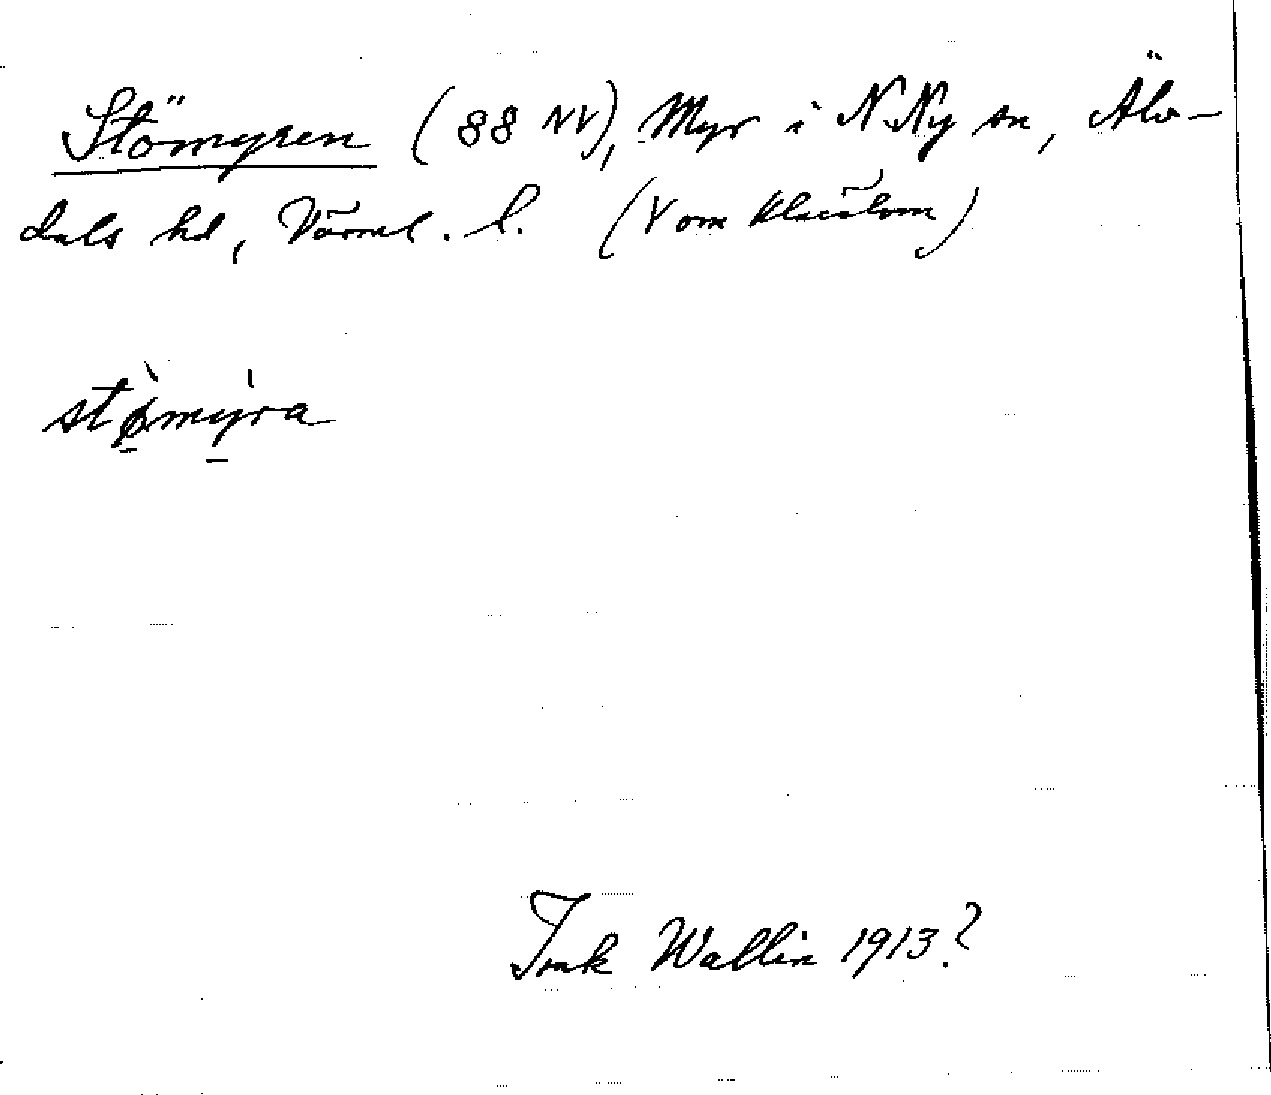 Stömyren (88 NV), Myr i N. Ny sn, Älv-
dals hd, Värml. l. (V om Klarälven)
stø̀my̍ra
Ink Wallin 1913?